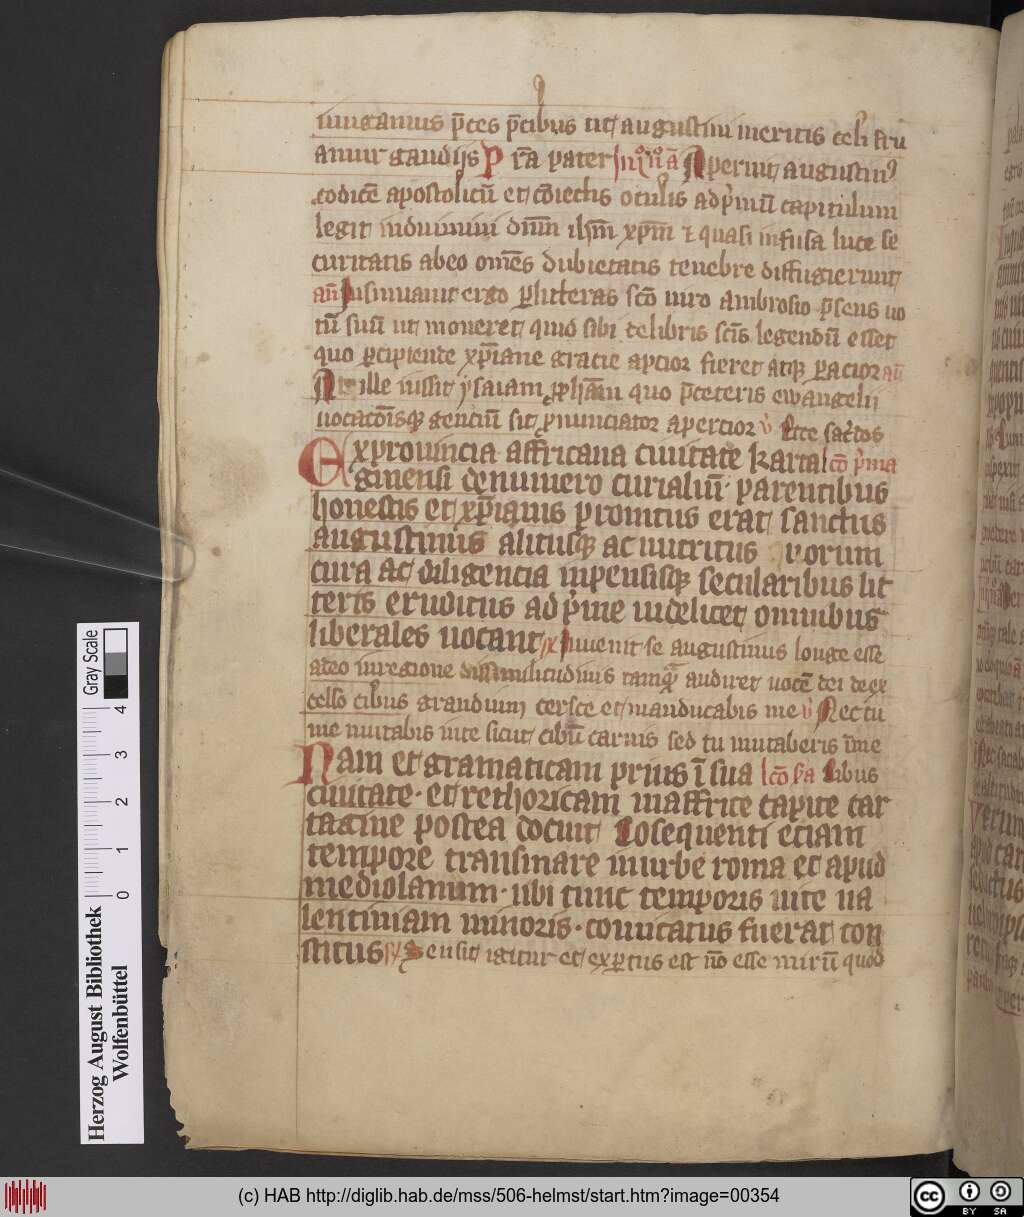 iungamus p̄ces p̄cibus ut augustini meritis celi fru
amur gaudijs P rā pater In iͦ nͦ ā Aperuit augustinꝰ
codicē apostolicū et cōiectis oculis ad p̍mū capitulum
legit induimini dnm̄ ihm̄ xp̄m ⁊ quasi infusa luce se
curitatis abeo om̄es dubietatis tenebre diffugierunt
an̄ Insinuauit ergo ꝑ litteras scō uiro ambrosio p̄sens uo
tū suū ut moneret quid sibi de libris scīs legendū esset
quo ꝑcipiende xp̄iane gracie apcior fieret atqꝫ ꝑacior an̄
At ille iussit ysaiam ꝓph̄am quo p̄ceteris ewangelii
uocacōisqꝫ genciū sit p̄nunciator apercior v̍ Ecce sac̍dos
Ex prouincia affricana ciuitate karta lcō p̍ma
ginensi de numero curialiū parentibus
honestis et xp̄ianis progenitus erat sanctus
augustinus alitusqꝫ ac nutritus eorum
cura ac diligencia inpensisqꝫ secularibus lit
teris eruditus ad p̍me uidelicet omnibus
liberales uocant Inuenit se augustinus longe esse
a deo in regione dissimilitudinis tamqᷓ audiret uocē dei de ex
celso cibus grandium cresce et manducabis me v̍ Nec tu
me mutabis in te sicut cibū carnis sed tu mutaberis ī me
Nam et gramaticam prius ī sua lcō sᷓa Cibus
ciuitate · et rethoricam in affrice capite car
tagine postea docuit Cōsequenti eciam
tempore transmare in urbe roma et apud
mediolanum · ubi tunc temporis uite ua
lentiniani minoris · comitatus fuerat con
stitus Sensit igitur et exꝑtus est nō esse mirū quod
Gray Scale
0 1 2 3 4
Herzog August Bibliothek
Wolfenbüttel
(c) HAB http://diglib.hab.de/mss/506-helmst/start.htm?image=00354
cc BY SA